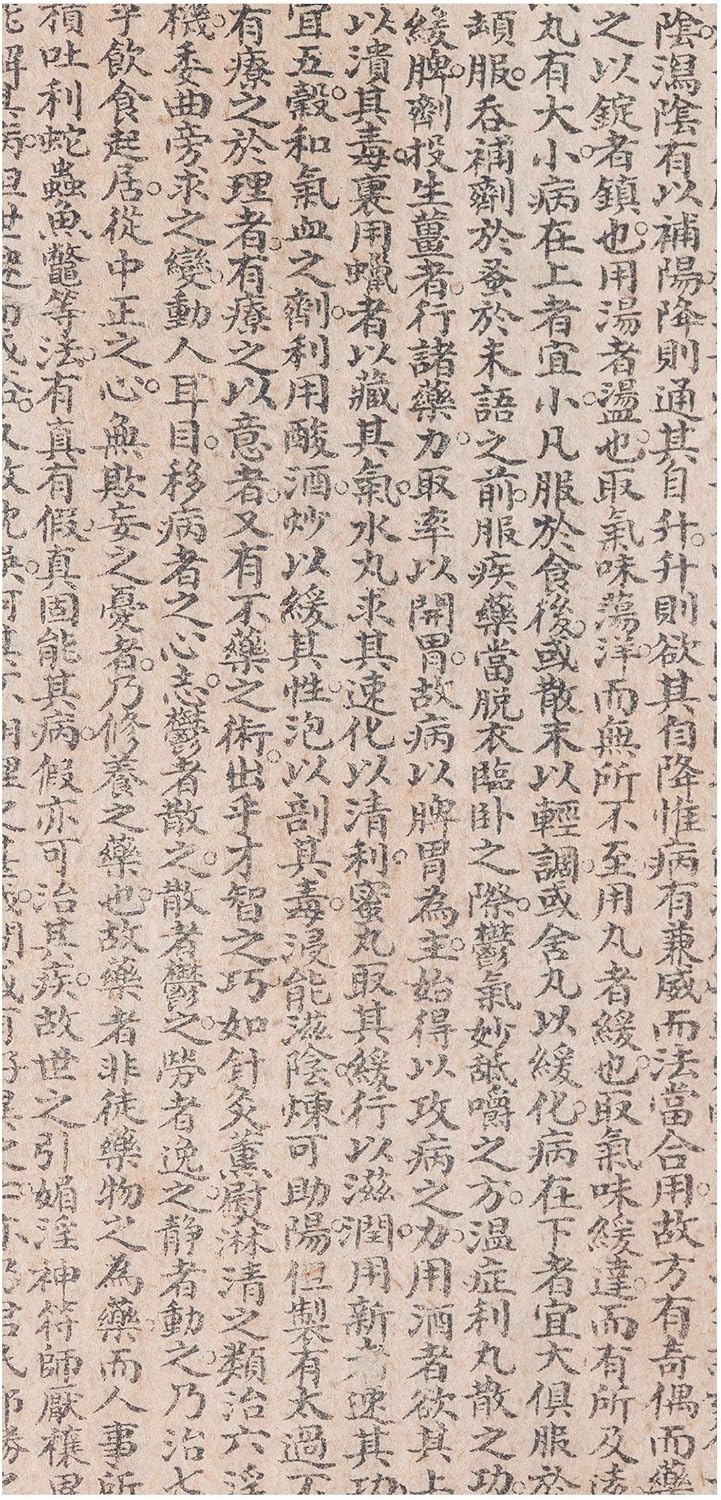 陰瀉陰有以補陽降則通其自升升則欲其自降惟病有兼威而法當合用故方有奇偶而藥
之以錠者鎮也用湯者盪也取氣味蕩洋而無所不至用丸者緩也取氣味緩達而有所及法
丸有大小病在上者宜小凡服於食後或散末以輕調或舍丸以緩化病在下者宜大俱服於
頡服吞補劑於蚤於未語之前服疾藥當脫衣臨卧之際鬱氣妙䑛嚼之方溫症利丸散之功
緩脾劑投生薑者行諸藥力取率以開胃故病以脾胃為主始得以攻病之力用酒者欲其上
以潰其毒裏用蠟者以藏其氣水丸求其速化以清利蜜丸取其緩行以滋潤用新者速其功
宜五穀和氣血之劑利用酸酒炒以緩其性泡以剖其毒浸能滋陰煉可助陽但製有太過不
有療之於理者有療之以意者又有不藥之術出乎才智之巧如針灸薰慰淋清之類治六淫
機委曲旁求之變動人耳目移病者之心志鬱者散之散者鬱之勞者逸之靜者動之乃治七
乎飲食起居從中正之心無欺妄之憂者乃修養之藥也故藥者非徒藥物之為藥而人事所
積吐利蛇蟲魚鼈等法有真有假真固能其病假亦可治其疾故世之引媚淫神符師厭穰